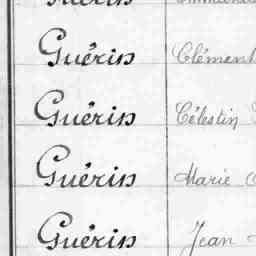 Guérin
Guérin Clément
Guérin Célestin
Guérin Marie
Guérin Jean